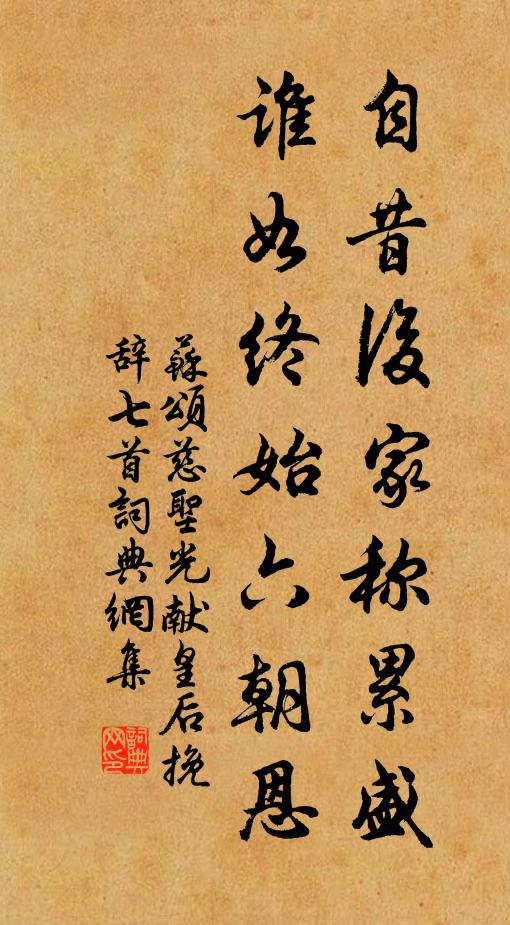 自昔後家称累盛
誰如終始六朝恩
蘇頌慈聖光献皇后挽
辞七首詞典網集
詞典网印